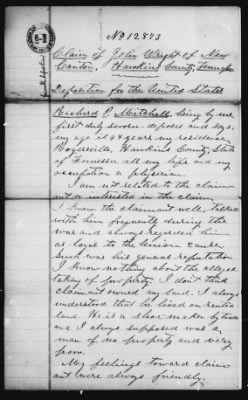 No 12873
Claim of John Wright of New
Canton, Hawkins County, Tennessee
Deposition for the United States
Richard P. Mitchell, being by me
first duly sworn deposes and says,
my age is years my residence
Rogersville, Hawkins County, State
of Tennessee all my life and my
occupation a physician.
I am not related to the claim-
ant or interested in the claim.
I know the claimant well, talked
with him frequently during the
war and always regarded him
as loyal to the Union cause.
Such was his general reputation
I know nothing about the alleged
taking of property. I don't think
claimant owned any land. I always
understood that he lived on rented
land. He is a shoe maker by trade
and I always supposed was a
man of no property and very
poor.
My feelings toward claim-
ant were always friendly.